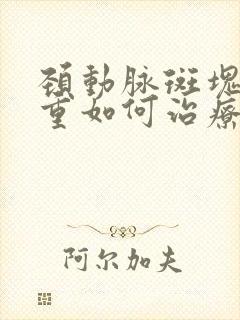 頚動脉斑塊
重如何治療
阿尔加夫